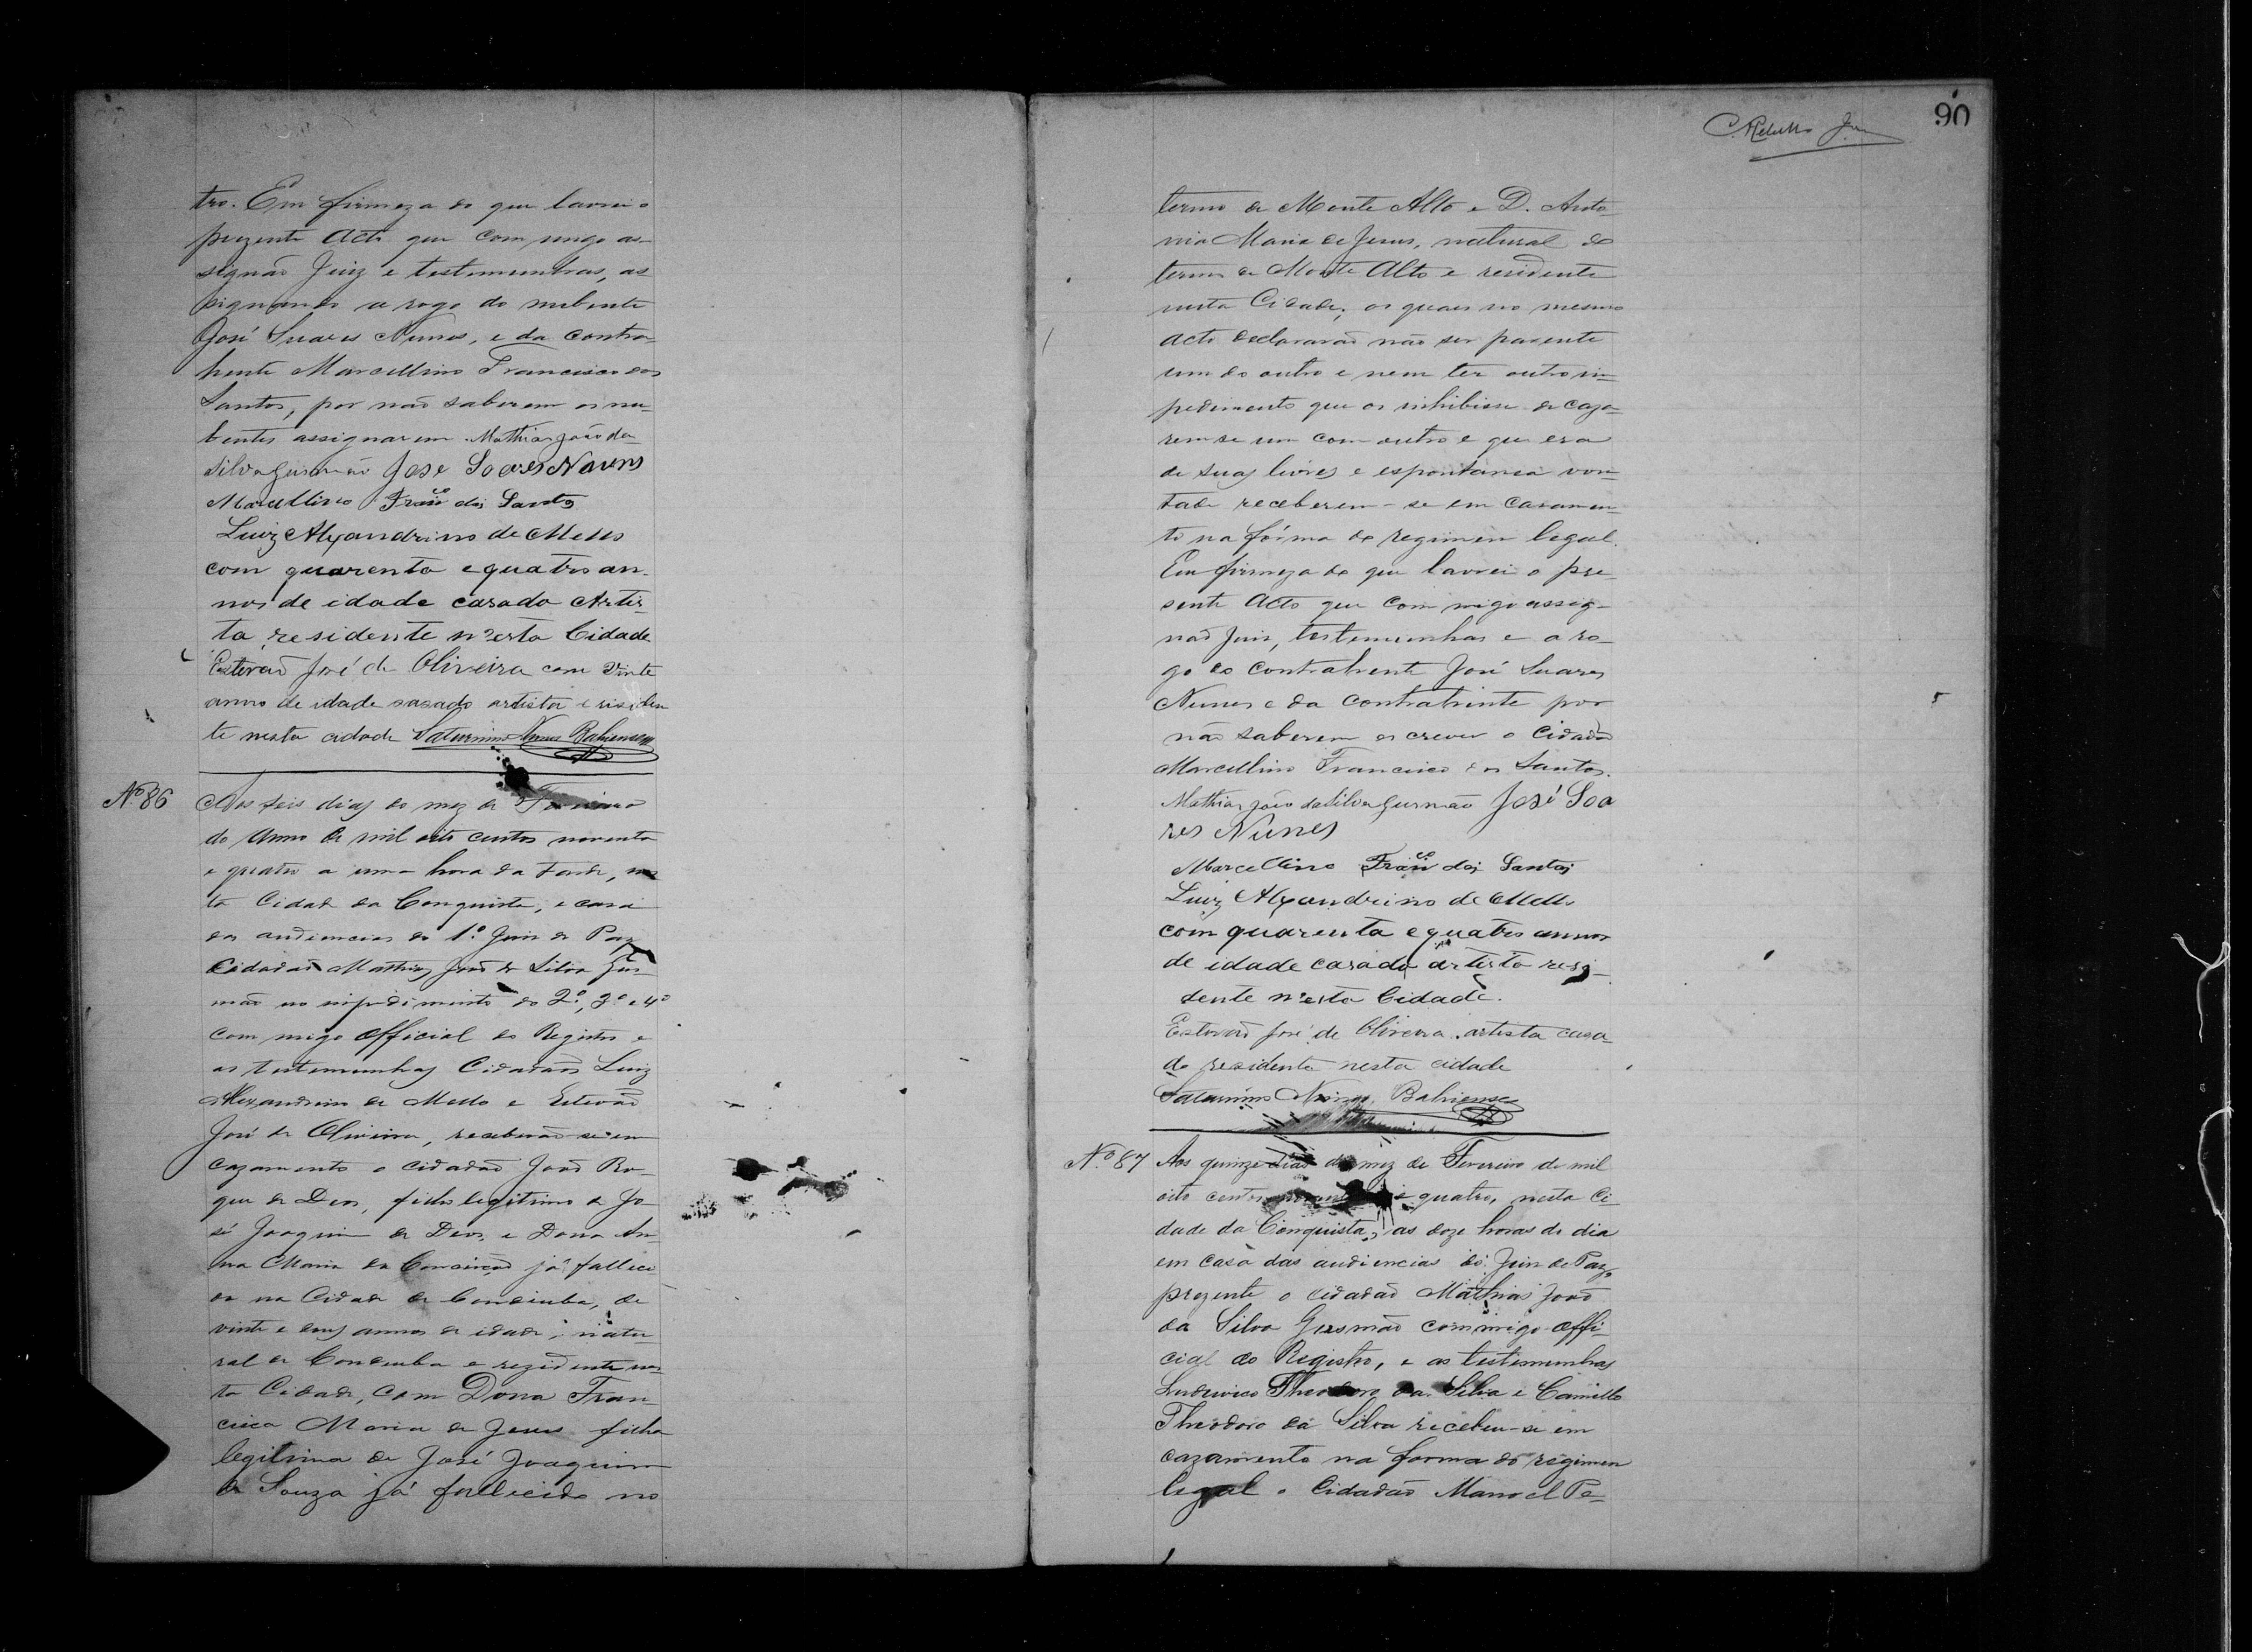 tro. Em firmeza do que lavrei o
prezente Acto que com migo as-
signão Juiz e testemunhas, as
signando a rogo do nubente
José Suares Nunes, e da contra-
hente Marcellino Francisco dos
Santos, por não saberem os nu-
bentes assignarem. Mathias João da
Silva Gusmão José Soares Nunes
Marcellino Franco dos Santos
Luiz Alexandrino de Mello
com quarenta e quatro an-
nos de idade casado Artis-
ta, residente n'esta Cidade
Estevão José de Oliveira com vinte
annos de idade casado artista e residen
te nesta cidade Saturnino Nunes Bahiense
Nº 86 Aos seis dias do mez de Fevereiro
do Anno de mil oito centos noventa
e quatro a uma hora da tarde, nes
ta Cidade da Conquista, e casa
das audiencias do 1º Juis de Paz
Cidadão Mathias João da Silva Gus-
mão no impedimento do 2º, 3º e 4º
com migo Official do Registro e
as testemunhas Cidadãos Luiz
Alexandrino de Mello e Estevão
José de Oliveira, receberão-se em
cazamento o cidadão João Ro-
que de Deos, filho legitimo de Jo-
sé Joaquim de Deos, e Dona An-
na Maria da Conceição já falleci-
da na Cidade de Condeuba, de
vinte e dous annos de idade, natu-
ral de Condeuba e rezidente nes-
ta Cidade, com Dona Fran-
cisca Maria de Jesus filha
legitima de José Joaquim
de Souza já fallecido no
90
termo de Monte Alto e D. Anto-
nia Maria de Jesus, natural do
termo de Monte Alto e residente
nesta Cidade, os quaes no mesmo
acto declararão não ser parente
um do outro e nem ter outro im-
pedimento que os inhibisse de caza-
rem se um com outro e que era
de suas livres e espontanea von-
tade receberem-se em casamen-
to na fórma do regimen legal.
Em firmeza do que lavrei o pre-
sente Acto que com migo assig-
não Juis, testemunhas e a ro-
go do contrahente José Suares
Nunes e da contrahinte por
não saberem escrever o Cidadão
Marcellino Francisco dos Santos.
Mathias João da Silva Gusmão José Soa
res Nunes
Marcellino Franco dos Santos
Luiz Alexandrino de Mello
com quarenta e quatro annos
de idade casado artista resi-
dente n'esta Cidade.
Estevão José de Oliveira artista casa-
do residente nesta cidade
Saturnino Nunes Bahiense
Nº 87 Aos quinze dias do mez de Fevereiro de mil
oito centos noventa e quatro, nesta Ci-
dade da Conquista, as doze horas do dia
em casa das audiencias do Juis de Paz,
prezente o cidadão Mathias João
da Silva Gusmão commigo Offi-
cial do Registro, e as testemunhas
Ludovico Theodoro da Silva e Camillo
Theodoro da Silva recebeu-se em
cazamento na forma do regimen
legal o Cidadão Manoel Pe-